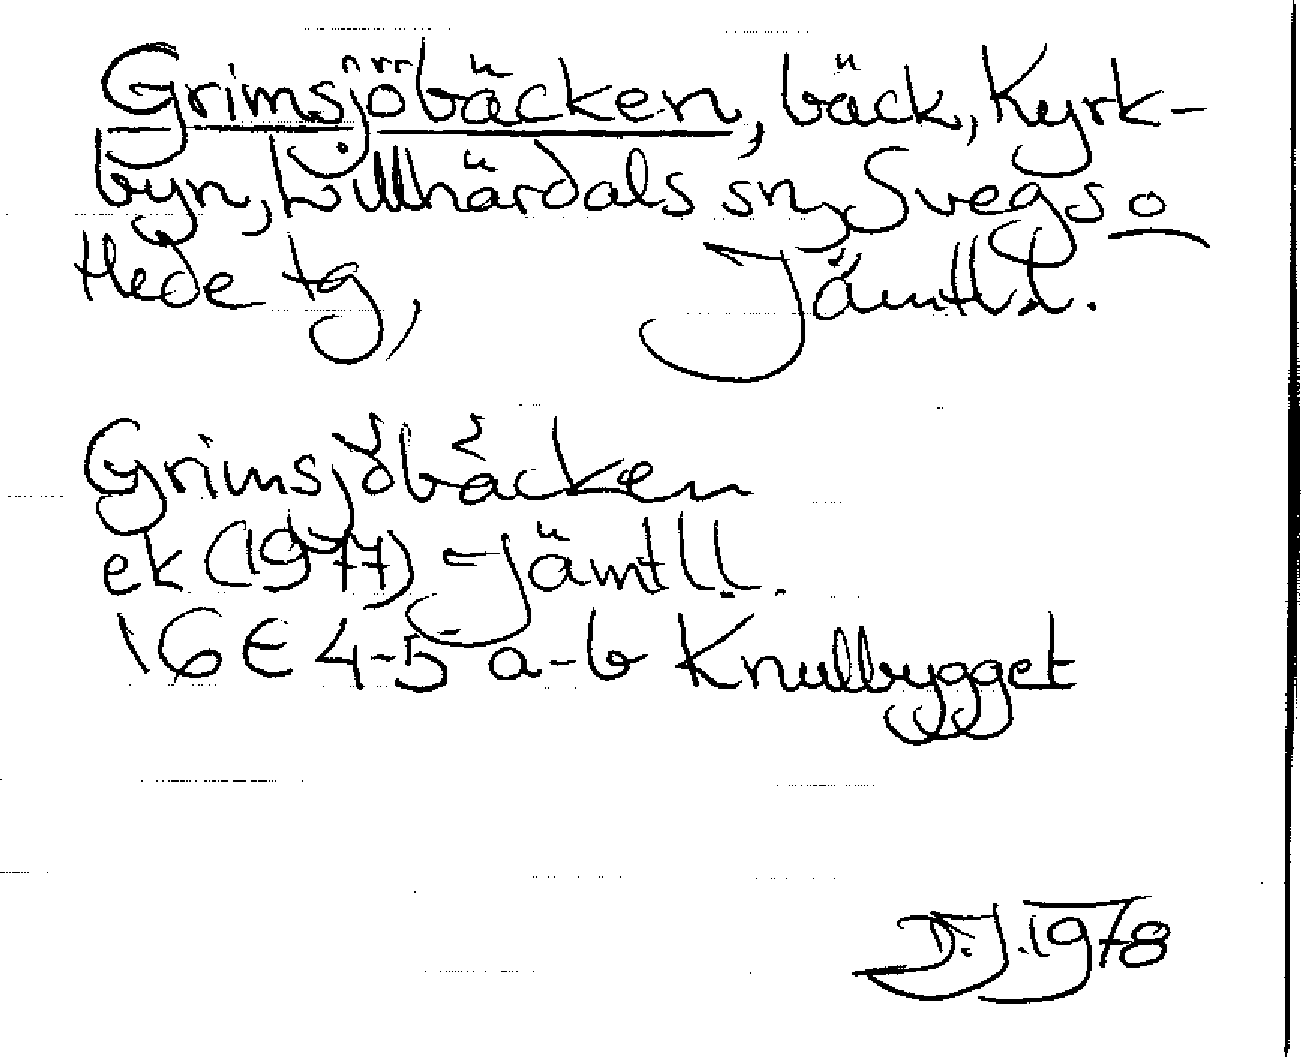 Grimsjöbäcken, bäck, Kyrk-
byn, Lillhärdals sn, Svegs o
Hede tg, Jämtl.l.
Grimsjöbäcken
ek (1977) Jämtl.l.
16E 4-5 a-b Knullbygget
D.J. 1978